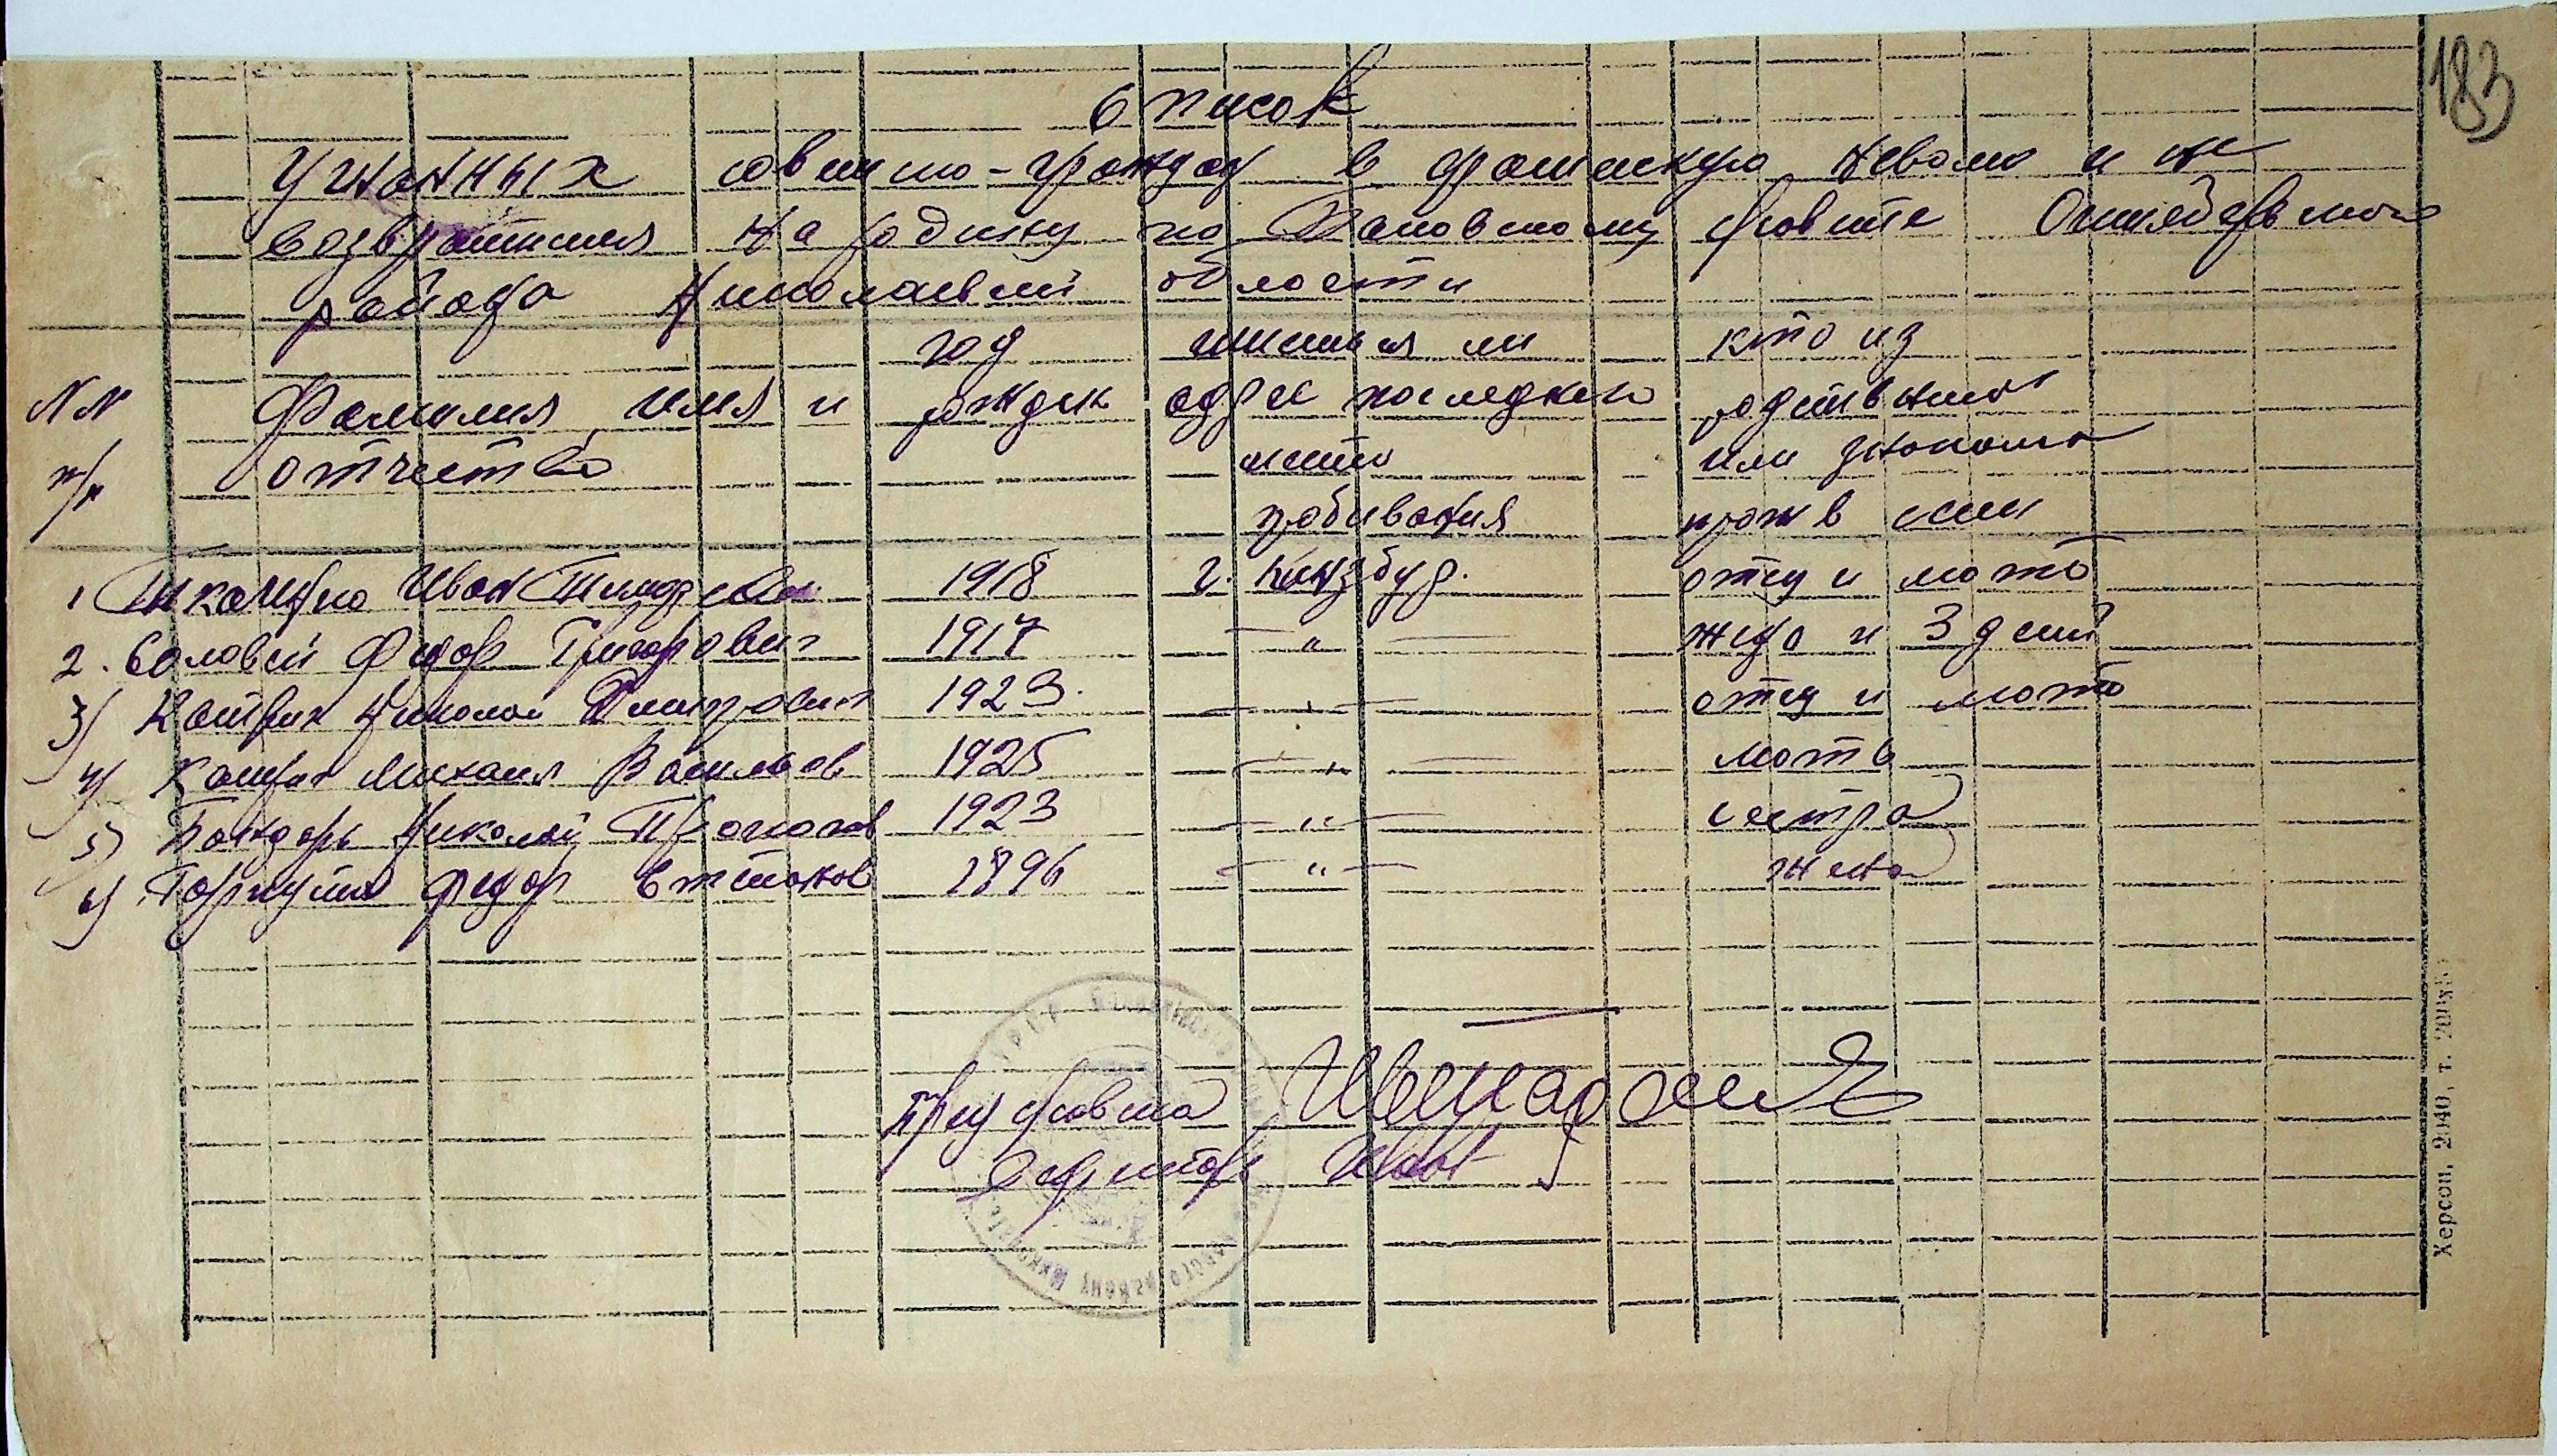 183
Список
Угнанных советско-граждан в фашискую неволю и не
возвратшихся на родину по сельсовете Октябрьского
района Николаевской области
NN п/п Фамилия, имя и отчество
год рожден
имеется ли адрес последнего место пробивания
кто из родствеников или знакомых прожив если
1 Ткаченко Иван 1918 г. Кинзбург. отец и мать
2. Соловей Федор Григорович 1917 —"— жена и 3 детей
3) Николай Дмитрович 1923. —"— отец и мать
4) Михаил Васильов 1925 —"— мать
5) Бондарь Николай 1923 —"— сестра
6) Федор 1896 —"— жена
Пред с/совета
Секретарь
Херсон, 2040, т.